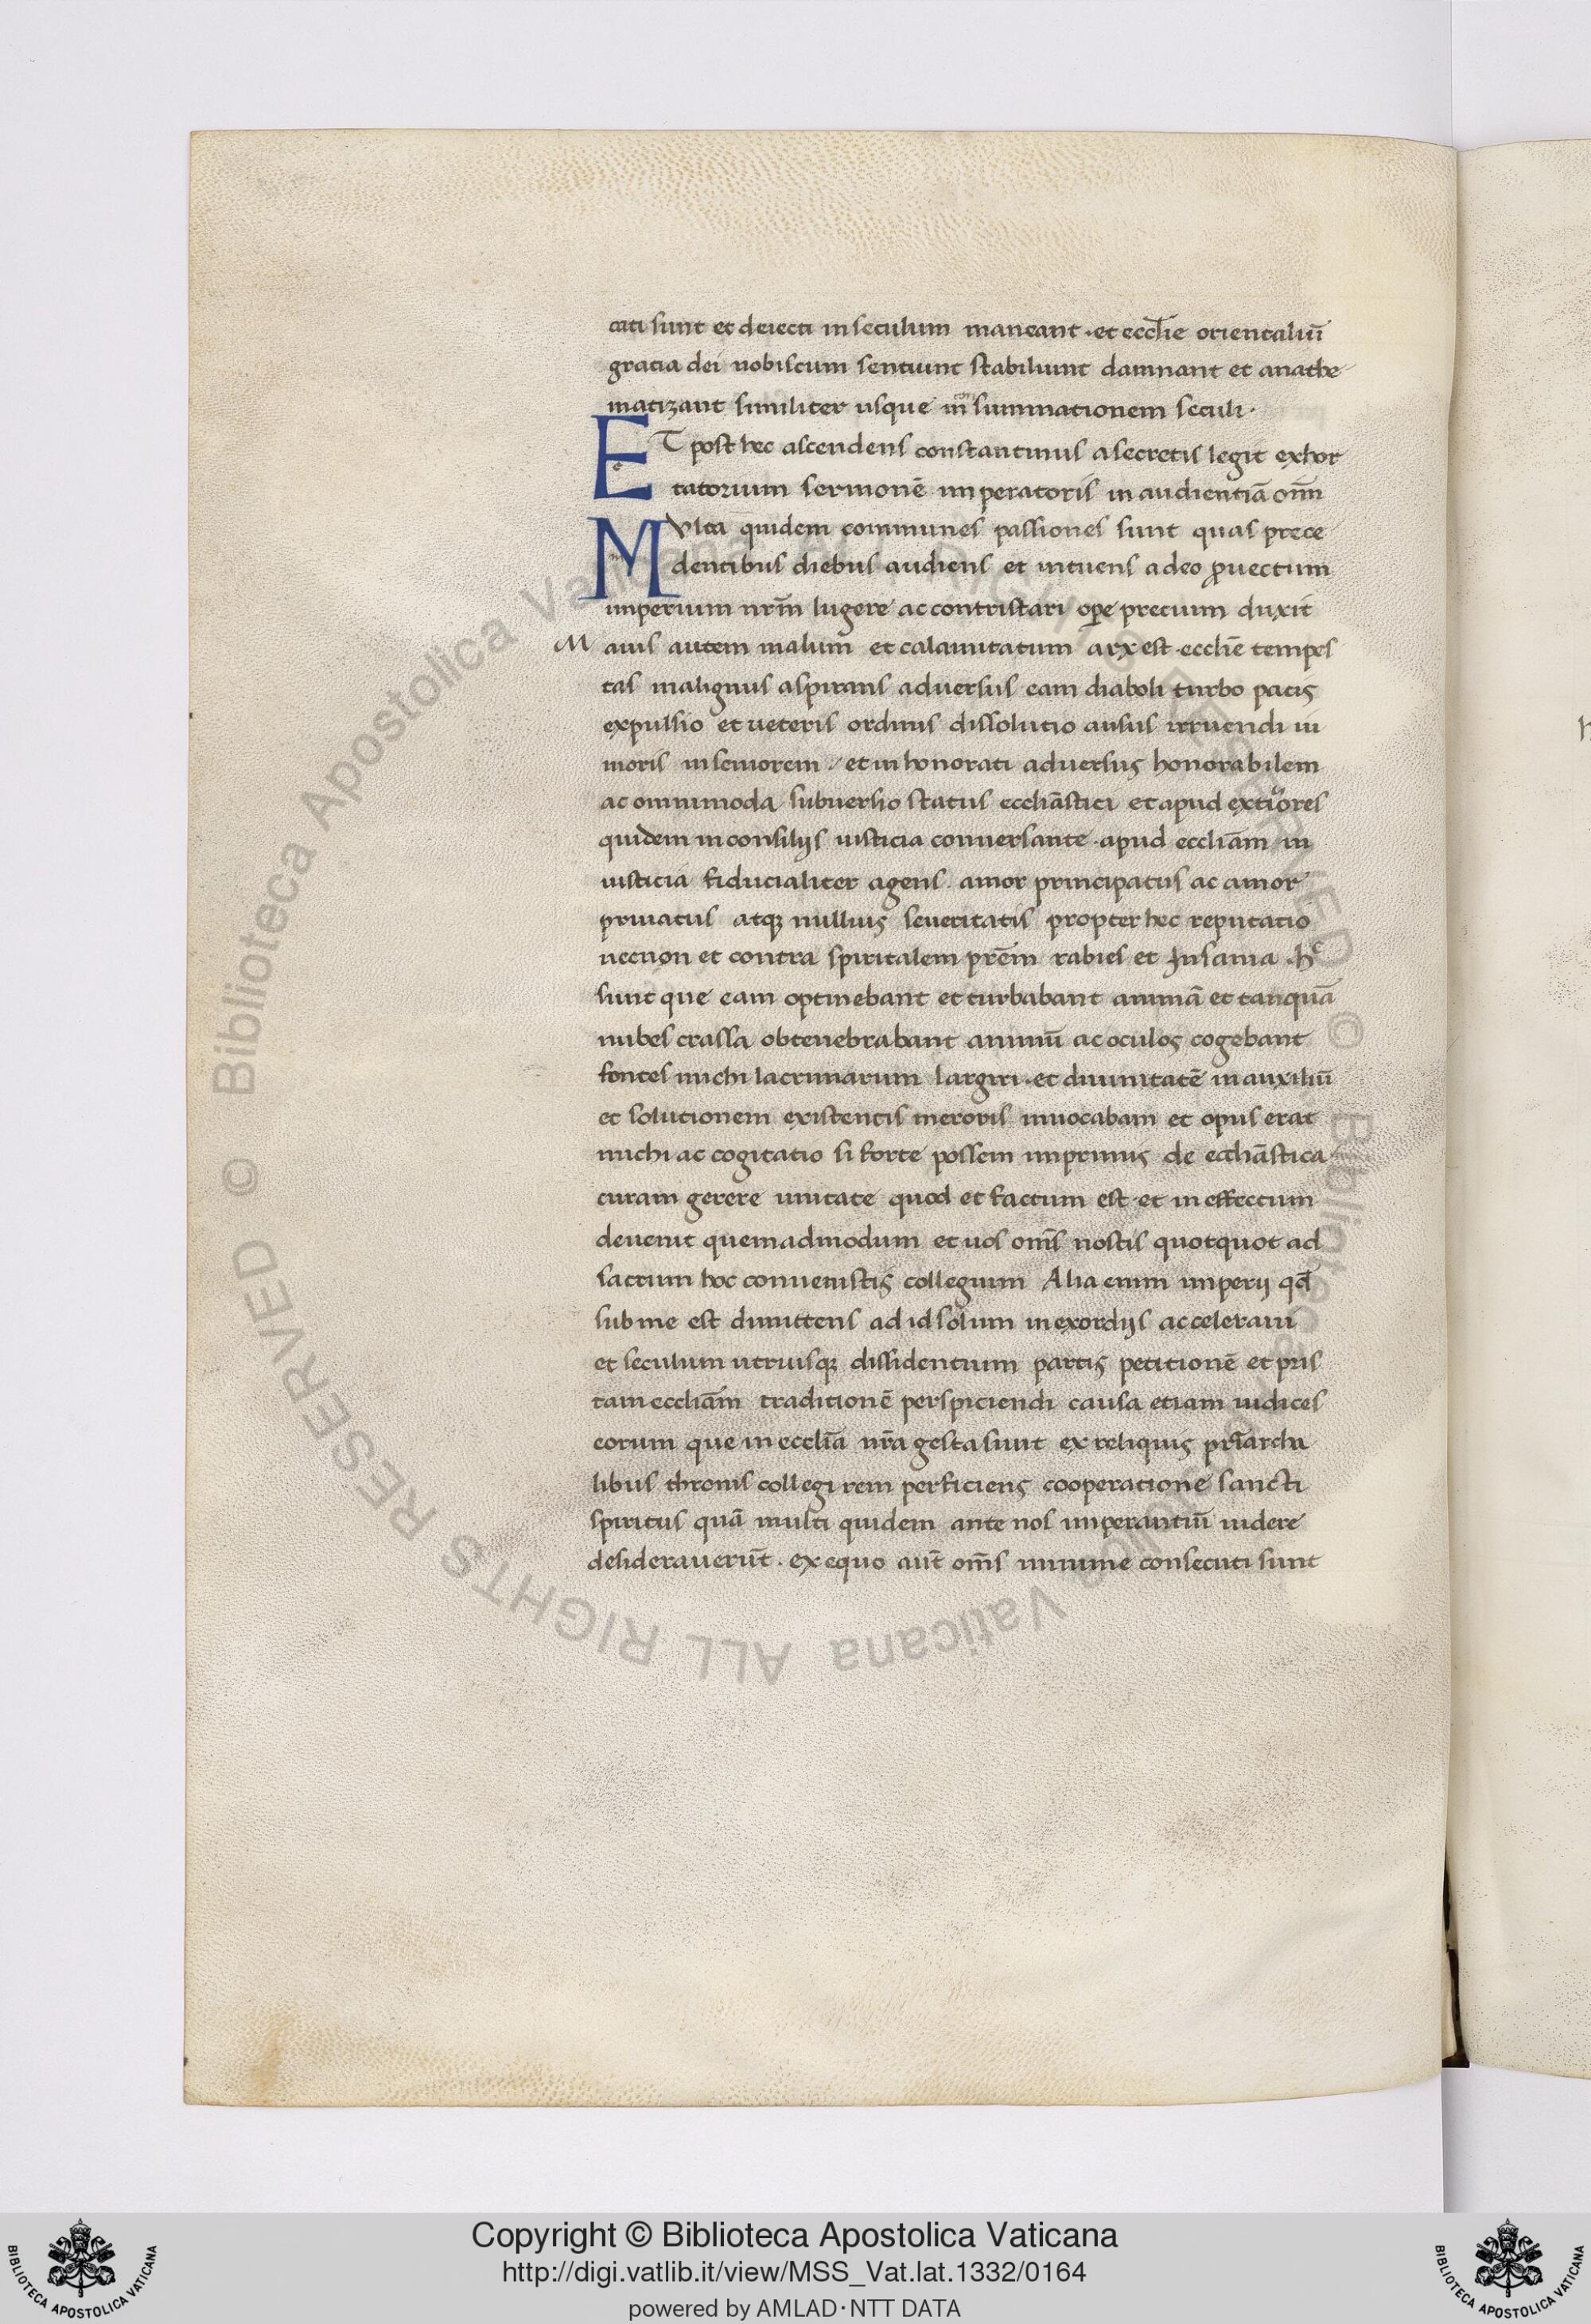 cati sunt et deiecti in seculum maneant · et eccl̄ie orientaliū
gracia dei nobiscum sentiunt stabiliunt damnant et anathe
matizant similiter usque in summationem seculi ·
ET post hec ascendens constantinus a secretis legit exhor
tatorium sermonē imperatoris in audientiā om̄
MVlta quidem communes passiones sunt quas prece
dentibus diebus audiens et intuens adeo ꝓuectum
imperium nr̄m lugere ac contristari ope precium duxit
M auis autem malum et calamitatum arx est · eccl̄ie tempes
tas malignus aspirans aduersus eam diaboli turbo pacis
expulsio et ueteris ordinis dissolutio ausus irruendi iu
nioris in seniorem · et inhonorati aduersus honorabilem
ac omnimoda subuersio status eccl̄iastici et apud extiores
quidem in consilijs iusticia conuersante · apud eccl̄iam in
iusticia fiducialiter agens · amor principatus ac amor
priuatus atqꝫ nullius seueritatis propter hec reputatio
necnon et contra spiritalem pr̄em rabies et Insania · hec
sunt que eam optinebant et turbabant animā et tanquā
nubes crassa obtenebrabant animū ac oculos cogebant
fontes michi lacrimarum largiri · et diuinitatē in auxiliū
et solutionem existentis meroris inuocabam et opus erat
michi ac cogitatio si forte possem imprimis de eccl̄iastica
curam gerere unitate quod et factum est · et in effectum
deuenit quemadmodum et uos om̄s nostis quotquot ad
sacrum hoc conuenistis collegium Alia enim imperij qd̄
sub me est dimittens ad id solum in exordijs acceleraui
et seculum utriusqꝫ dissidentium partis petitionē et pris
tam eccl̄iam traditionē perspiciendi causa etiam iudices
eorum que in eccl̄ia nr̄a gesta sunt ex reliquis pr̄iarcha
libus thronis collegi rem perficiens cooperatione sancti
spiritus quā multi quidem ante nos imperantiū uidere
desiderauerūt · ex equo aut̄ om̄s minime consecuti sunt
Copyright © Biblioteca Apostolica Vaticana
http://digi.vatlib.it/view/MSS_Vat.lat.1332/0164
powered by AMLAD·NTT DATA
BIBLIOTECA APOSTOLICA VATICANA
BIBLIOTECA APOSTOLICA VATICANA
© Biblioteca Apostolica Vaticana ALL RIGHTS RESERVED © Biblioteca Apostolica Vaticana ALL RIGHTS RESERVED